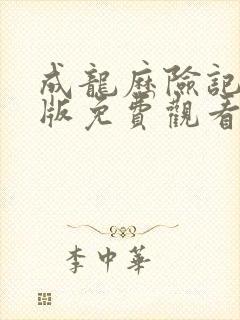 成龍歷險記
版免費觀看
李中華